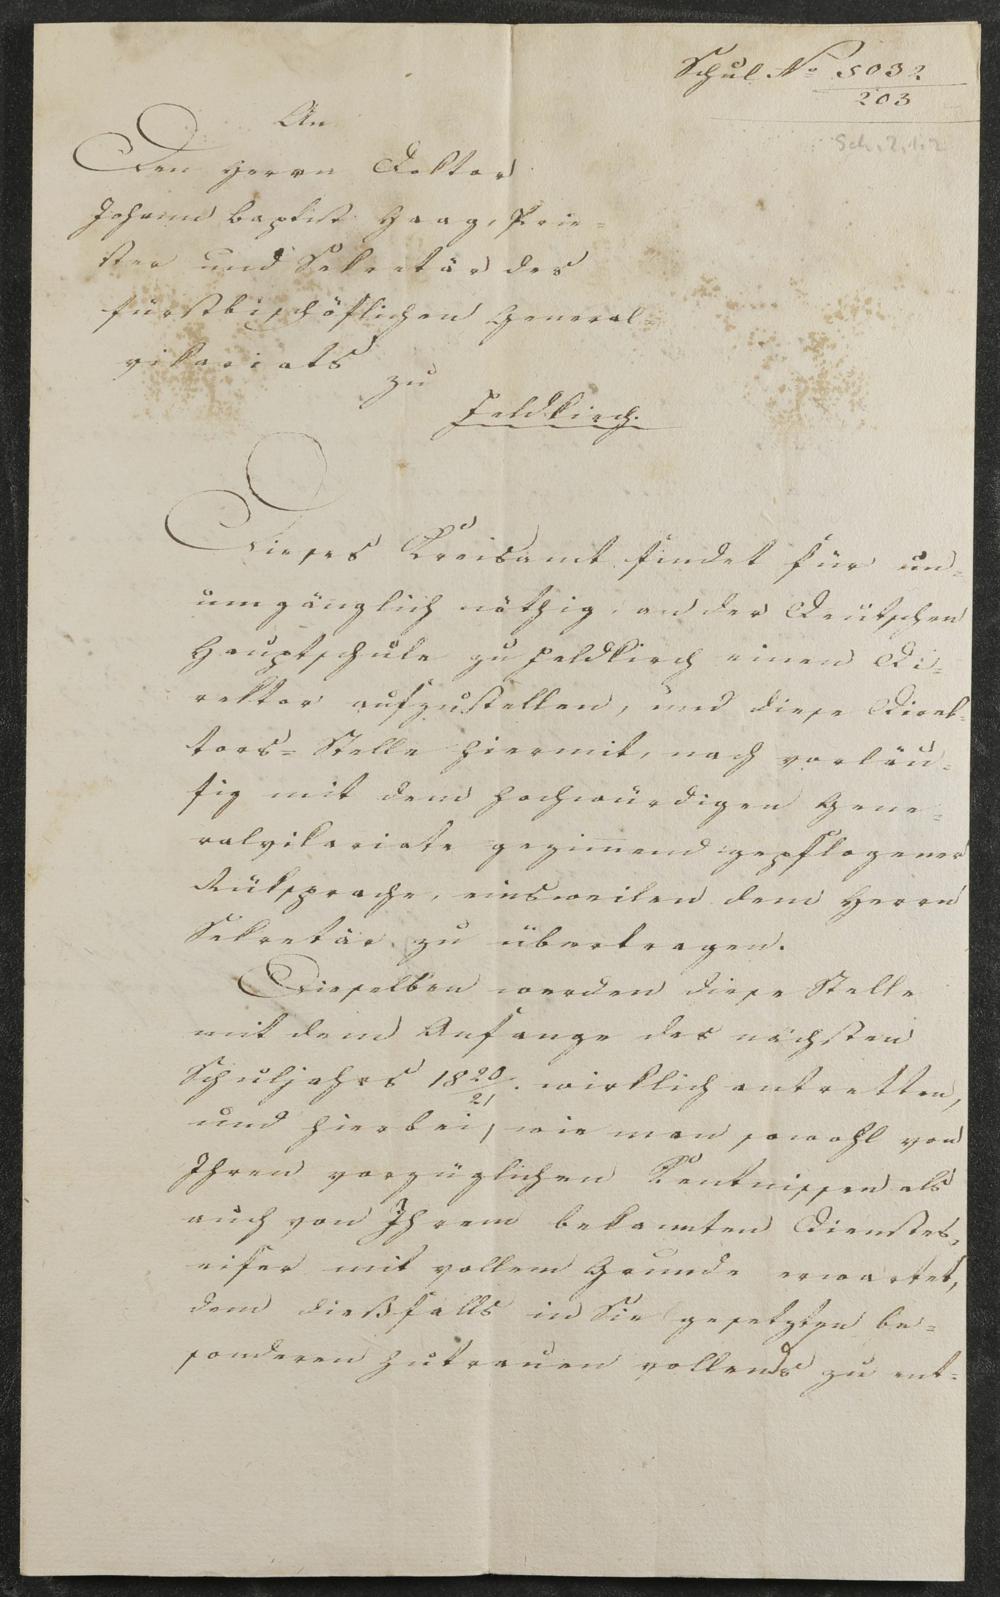 Schul No 5032
203
Sch. 2.1.2
An
Den Herrn Doktor
Johann Baptist Haag, Prie=
ster und Sekretär des
fürstbischöflichen General=
vikariats
zu
Feldkirch.
Dieses Kreisamt findet für un=
umgänglich nöthig, an der Deütschen
Hauptschule zu Feldkirch einen Di=
rektor aufzustellen, und diese Direk=
tors=Stelle hiermit, nach vorläu=
fig mit dem hochwürdigen Gene=
ralvikariate gepflogener
Rüksprache, einsweilen dem Herrn
Sekretär zu übertragen.
Dieselben werden diese Stelle
mit dem Anfange des nächsten
Schuljahrs 18 20/21. wirklich antretten,
und hierbei, wie man sowohl von
Ihren vorzüglichen Kentnissen als
auch von Ihrem bekannten Dienstes=
eifer mit vollem Grunde erwartet,
dem dießfalls in Sie gesetzten be=
sonderen Zutrauen vollends zu ent=